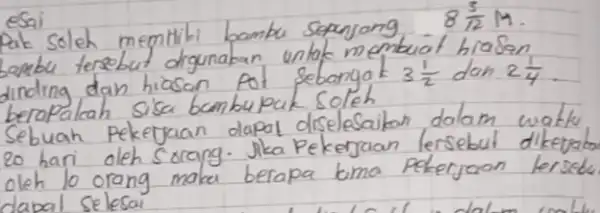 esai
Pak Soleh memiliki bambu sepanjang 8 5/12 M.
bambu tersebut digunakan untuk membuat hiasan
dinding dan hiasan Pot Sebanyak 3 1/2 dan 2 1/4.
berapakah sisa bambu pak Soleh
Sebuah Pekerjaan dapat diselesaikan dalam waktu
20 hari oleh 5 orang. Jika Pekerjaan tersebut dikerjaka
oleh 10 orang maka berapa lama Pekerjaan tersebu
dapat selesai